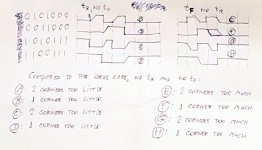 tR, NO tF
tF, NO tR
010111
010100
011000
001000
Ⓐ
Ⓑ
Ⓒ
Ⓓ
Ⓔ
Ⓕ
Ⓖ
Ⓗ
COMPARED TO THE IDEAL CASE, NO tR AND NO tF:
Ⓐ: 2 CORNERS TOO LITTLE
Ⓑ: 1 CORNER TOO LITTLE
Ⓒ: 2 CORNERS TOO LITTLE
Ⓓ: 1 CORNER TOO LITTLE
Ⓔ: 2 CORNERS TOO MUCH
Ⓕ: 1 CORNER TOO MUCH
Ⓖ: 2 CORNERS TOO MUCH
Ⓗ: 1 CORNER TOO MUCH